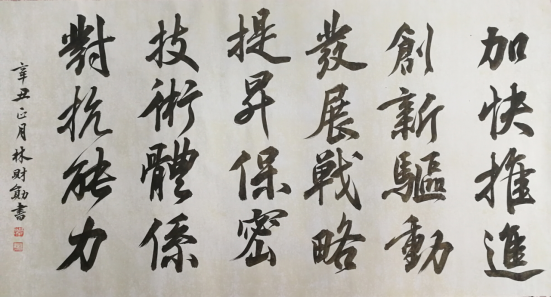 加快推進
創新驅動
發展戰略
提昇保密
技術體係
對抗能力
辛丑正月林財勛書